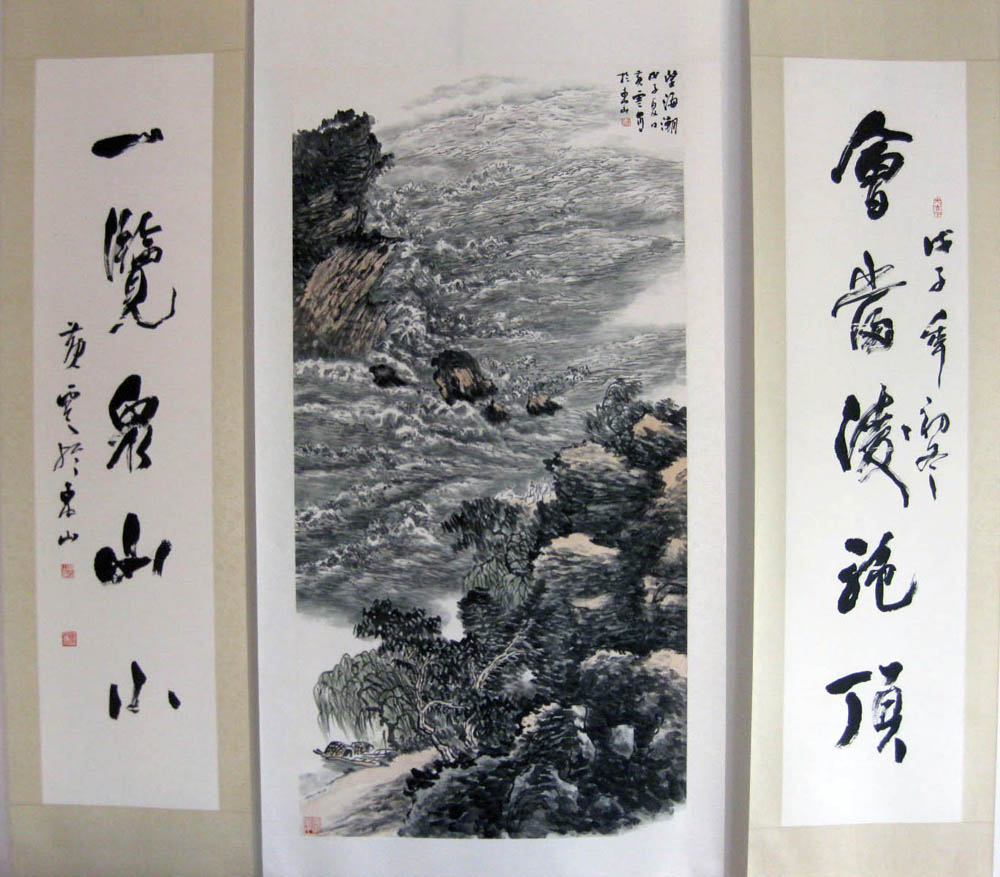 戊子年初冬
會當凌絶頂
望海潮
戊子夏日
黄雲寫
於東山
一覽眾山小
黄雲於東山